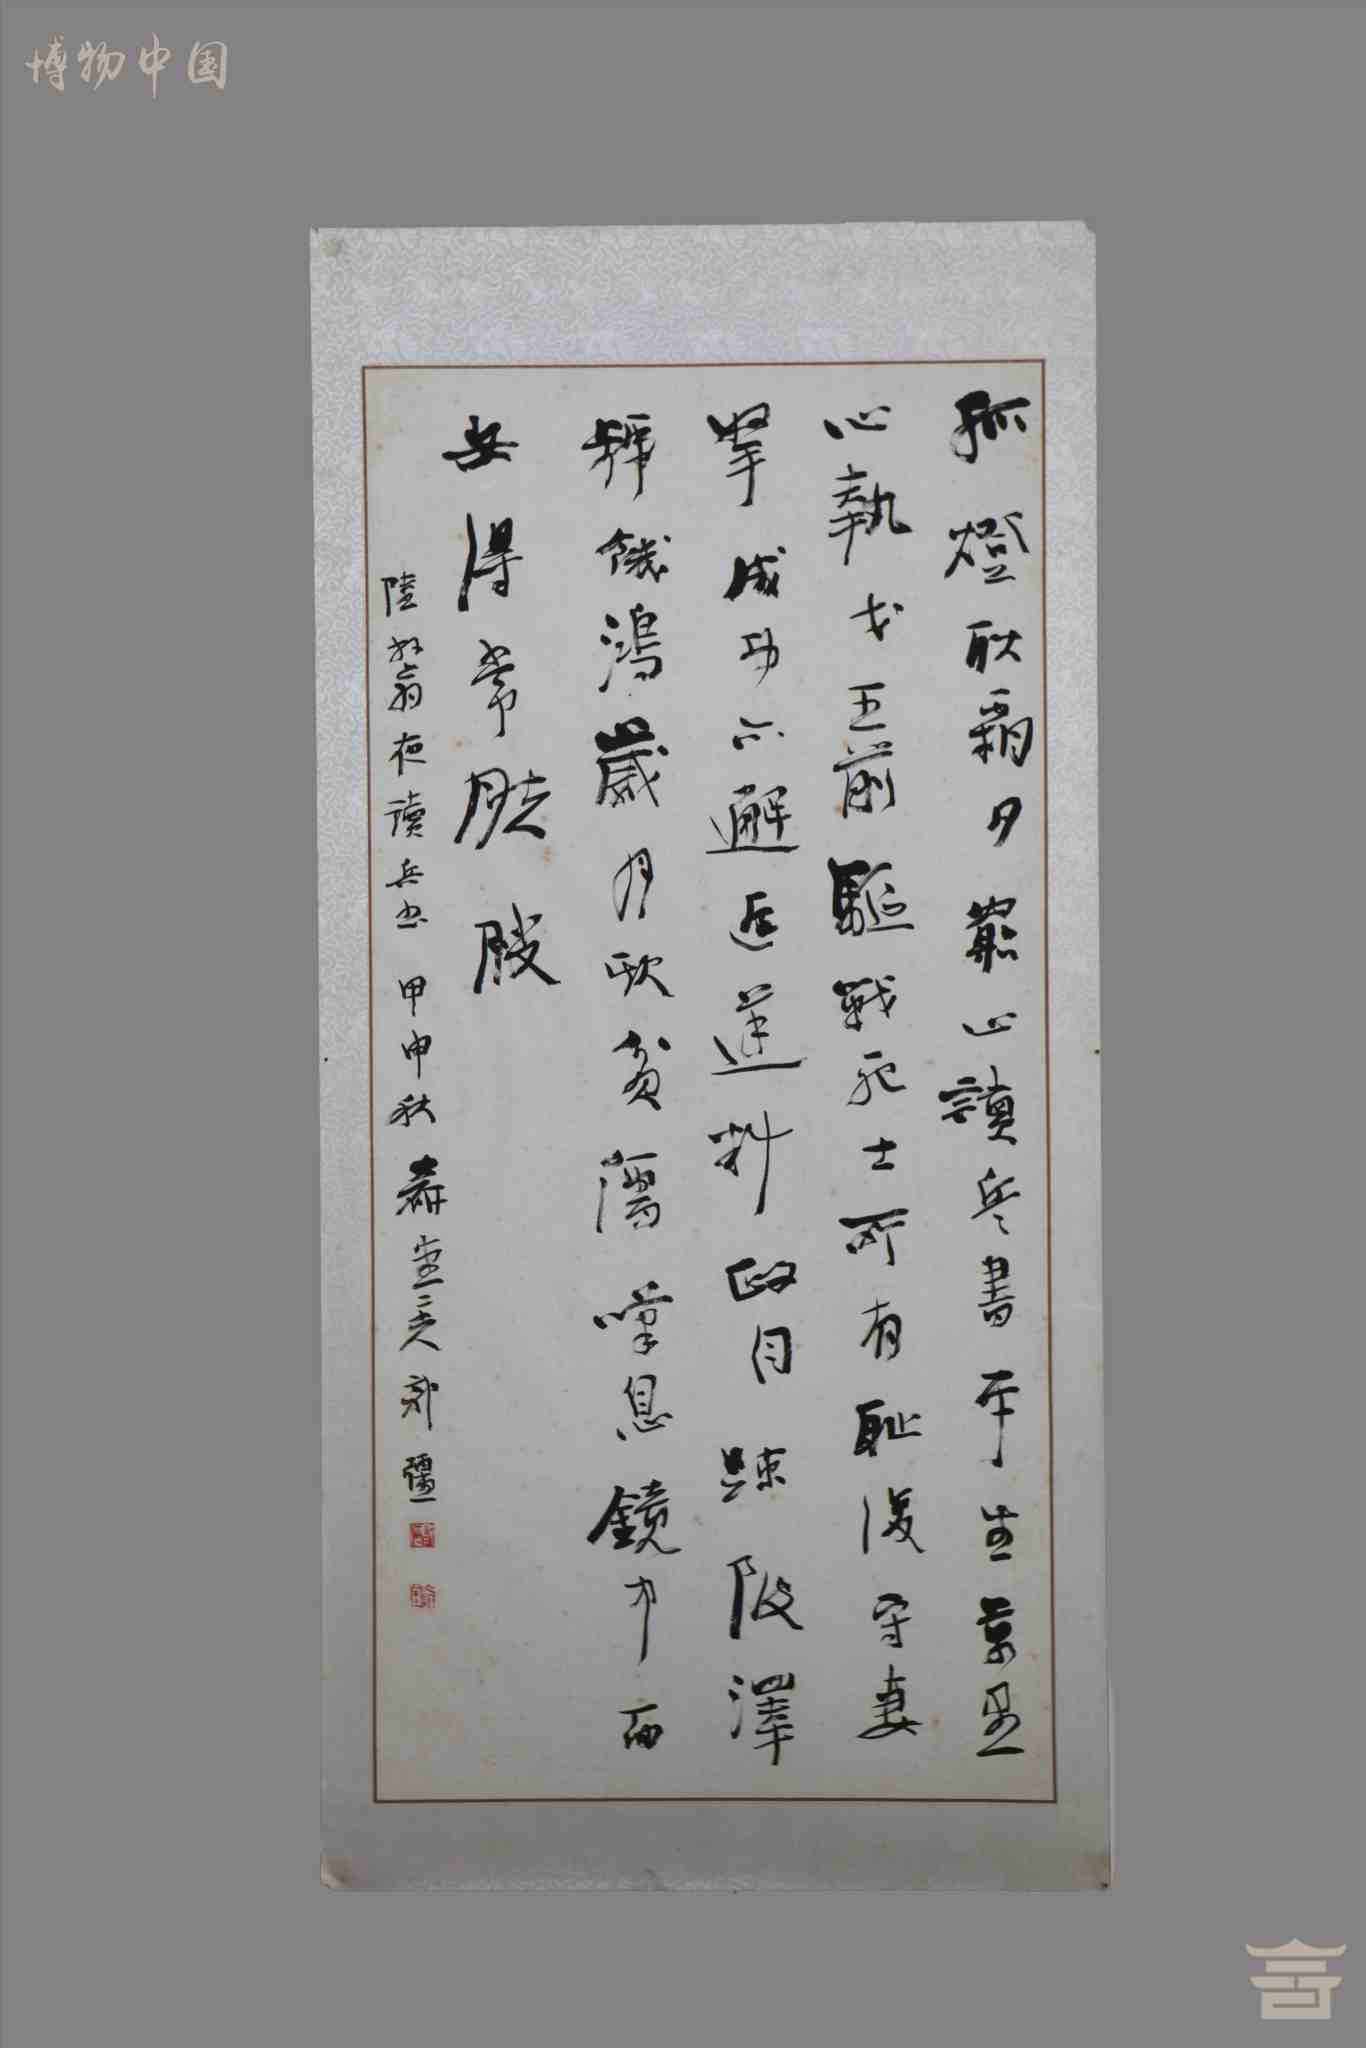 博物中国
孤燈耿霜夕窮山讀兵書平生萬里
心執戈王前驅戰死士所有恥復守妻
孥成功亦邂逅逆料政自踈陂澤
號饑鴻歲月欺貧儒嘆息鏡中面
安得常肤腴
陸放翁夜讀兵书 甲申秋